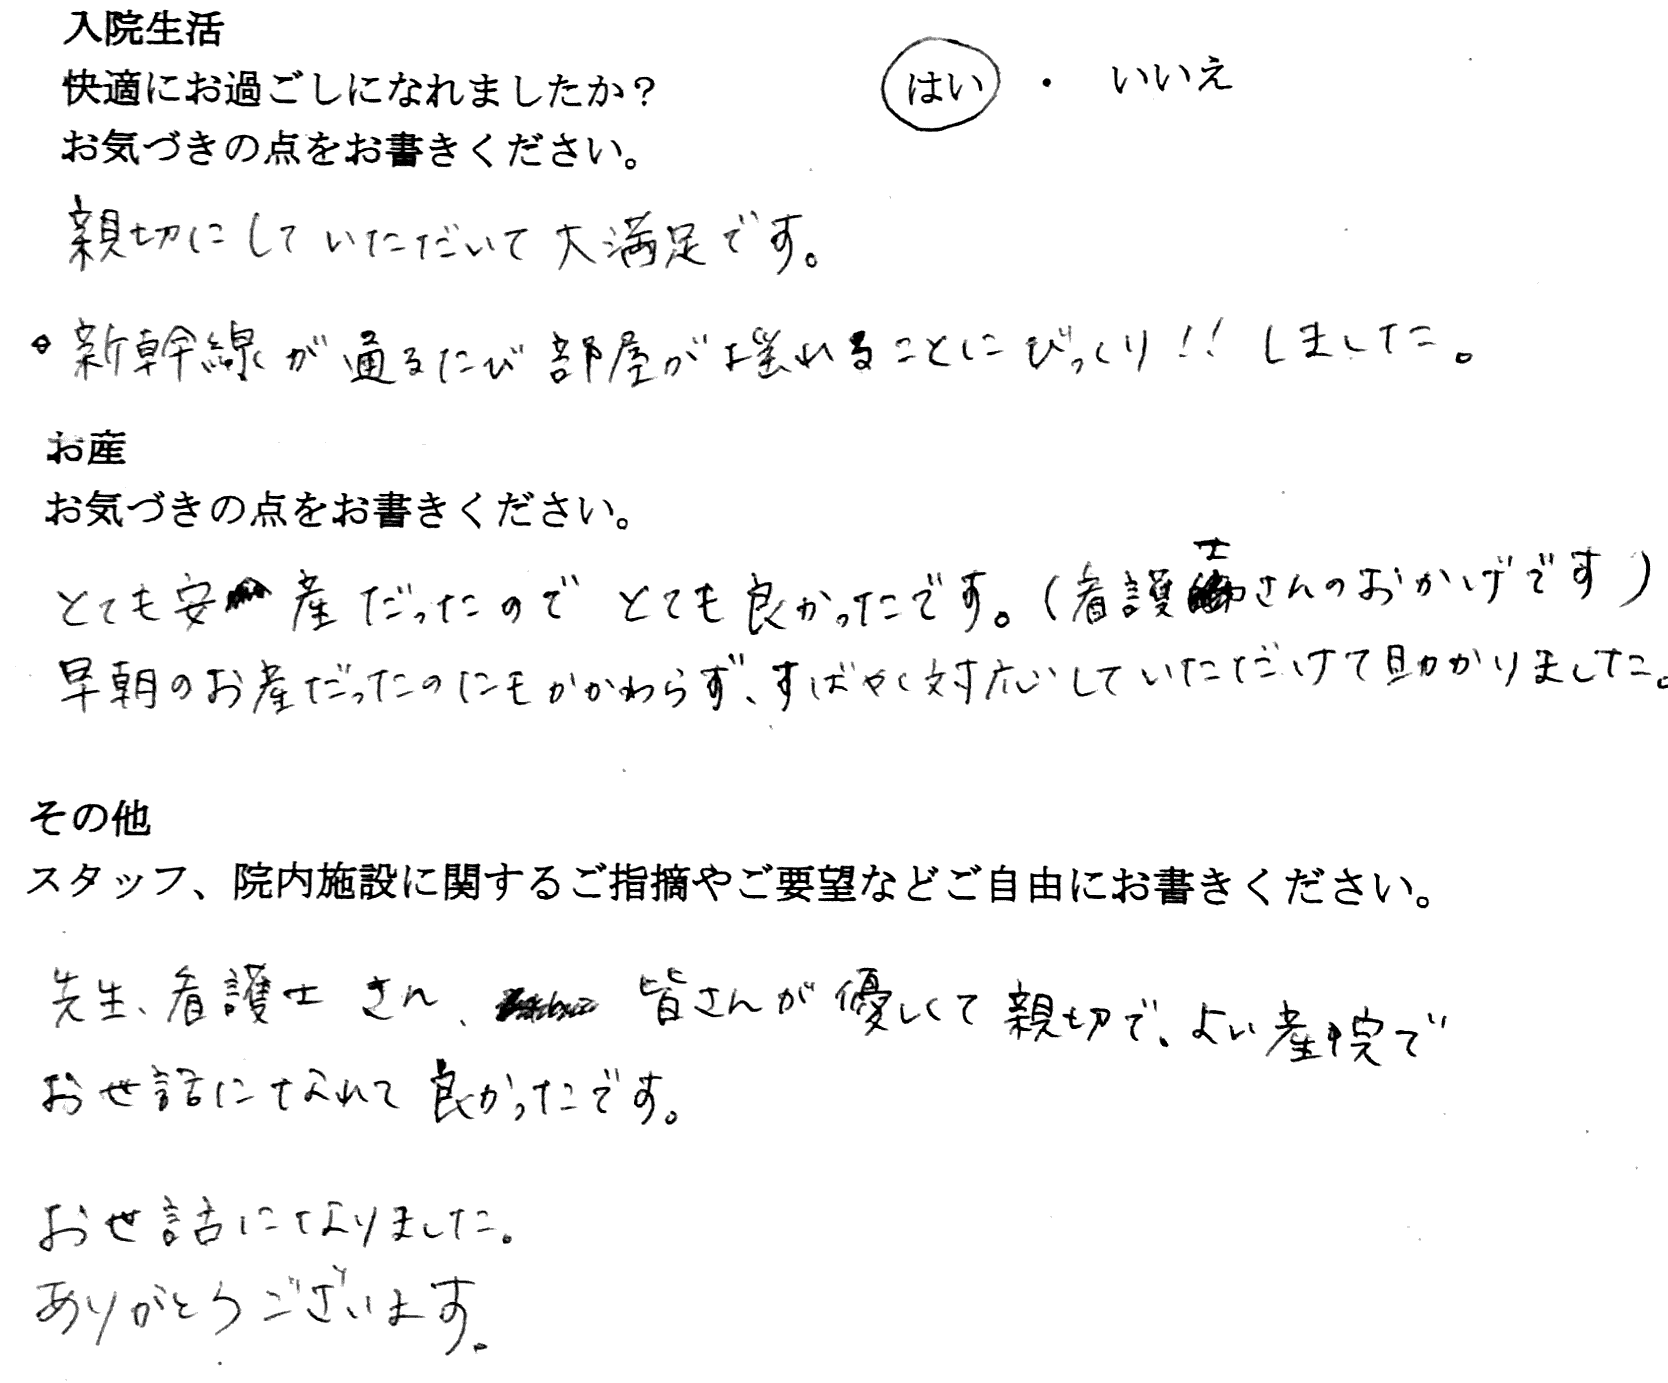 入院生活
快適にお過ごしになれましたか？ はい ・ いいえ
お気づきの点をお書きください。
親切にしていただいて大満足です。
。新幹線が通るたび部屋が揺れることにびっくり!! しました。
お産
お気づきの点をお書きください。
とても安産だったのでとても良かったです。(看護士さんのおかげです)
早朝のお産だったのにもかかわらず、すばやく対応していただけて助かりました。
その他
スタッフ、院内施設に関するご指摘やご要望などご自由にお書きください。
先生、看護士さん、皆さんが優しくて親切で、よい産院で
お世話になれて良かったです。
お世話になりました。
ありがとうございます。